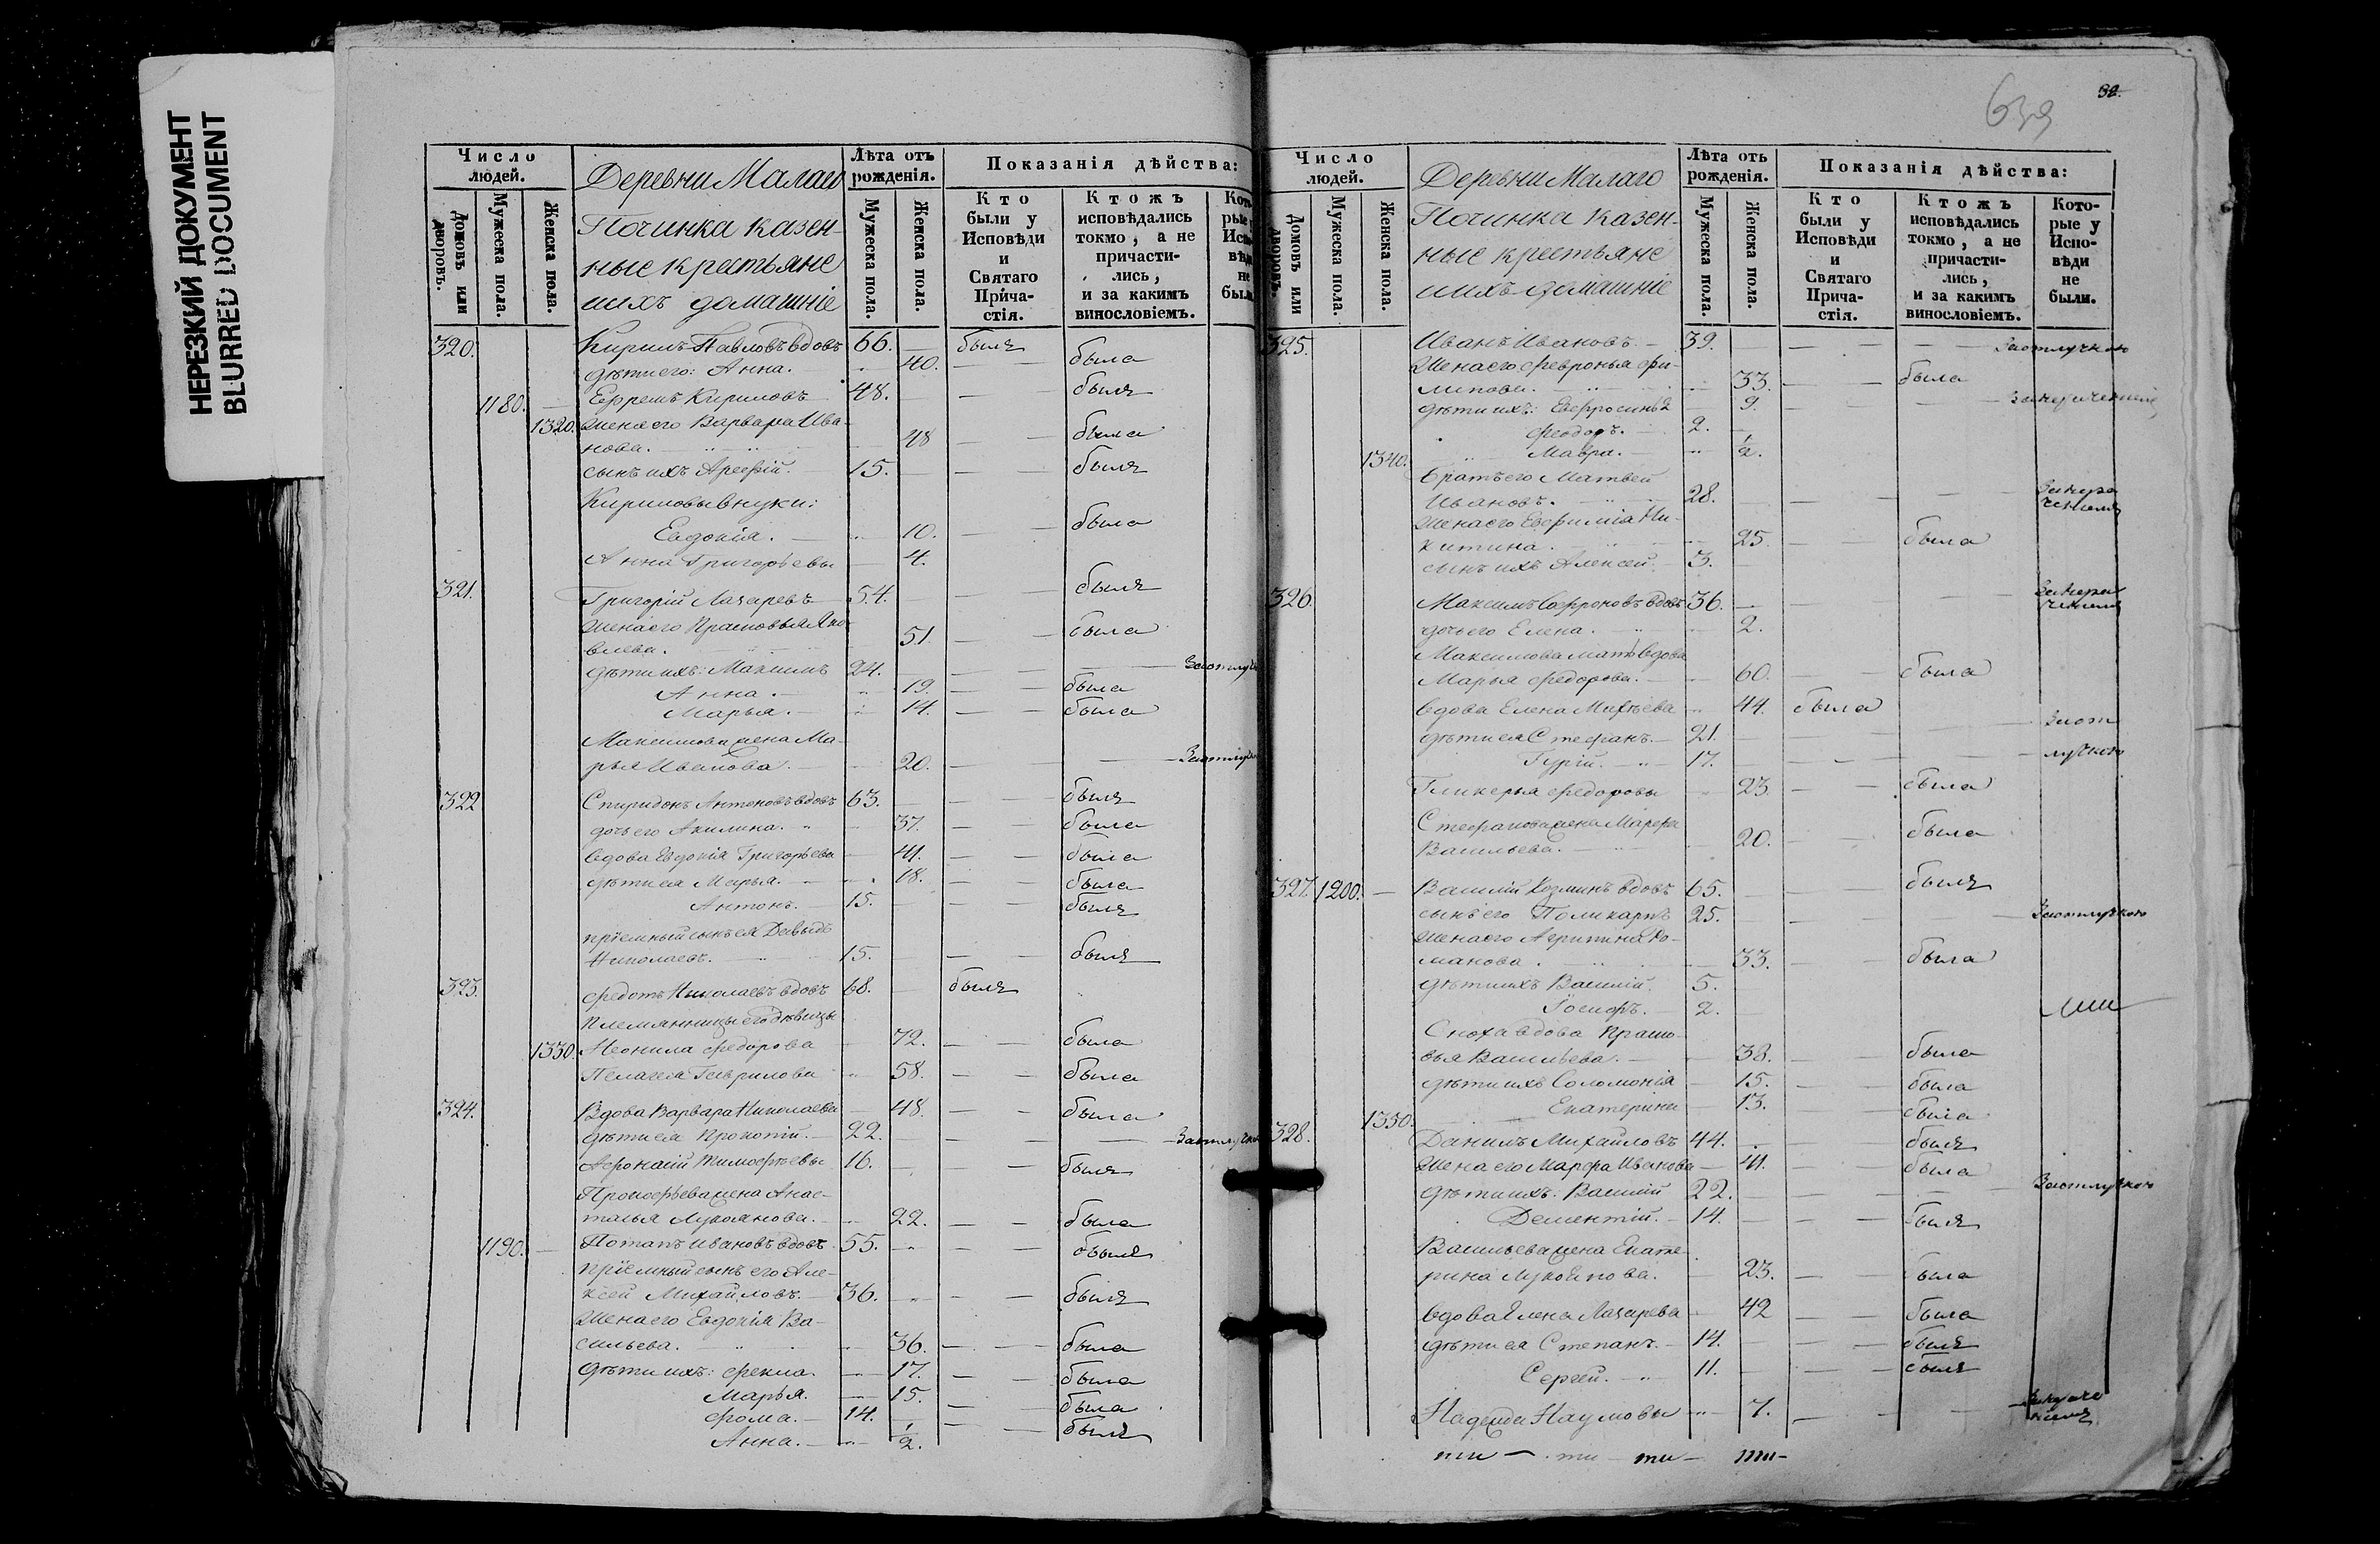 НЕРЕЗКИЙ ДОКУМЕНТ
BLURRED DOCUMENT
Число людей.
Деревни Малаго
Починка казен-
ные крестьяне
ихъ домашніе
Лѣта отъ рожденія.
Показанія дѣйства:
Домовъ или дворовъ.
Мужеска пола.
Женска пола.
Мужеска пола.
Женска пола.
Кто были у Исповѣди и Святаго Прича-стія.
Ктожъ исповѣдались токмо, а не причасти-лись, и за какимъ винословіемъ.
320. Кирилъ Павловъ вдовъ 66. — былъ
дѣти его: Анна. 40. — — была
1180. — Ефремъ Кириловъ 48. — былъ
1320. Жена его Варвара Ива-
нова. 48 — — была
сынъ ихъ Арефій. 15. — — былъ
Кириловы внуки:
Евдокія. — 10. — — была
Анна Григорьевы — 4.
321. Григорій Лазаревъ 54. — — былъ
Жена его Прасковья Яко-
влева. 51 — — была
дѣти ихъ: Максимъ 24. — — —
Анна. — 19. — — была
Марья. — 14. — — была
Максимова жена Ма-
рья Иванова. 20. — —
322 Спиридонъ Антоновъ вдовъ 63. — — былъ
дочь его Акилина. 37. — — была
вдова Евдокія Григорьева — 41. — — была
дѣти ея Марья. — 18. — — была
Антонъ. — 15. — — былъ
пріемный сынъ ея Давыдъ
Николаевъ. 15. — — былъ
323. Федотъ Николаевъ вдовъ 68. — былъ
Племянницы его дѣвицы
1330. Неонила Федорова — 72. — — была
Пелагея Гаврилова 58. — — была
324. Вдова Варвара Николаева — 48. — — была
дѣти ея Прокопій. — 22. — — —
Афонасій Тимофѣевы 16. — — былъ
Прокофьева жена Анас-
тасья Лукоянова. 22. — — была
1190. — Потапъ Ивановъ вдовъ 55. — — былъ
пріемный сынъ его Але-
ксей Михайловъ. — 36. — — былъ
Жена его Евдокія Ва-
сильева. 36. — — была
дѣти ихъ: Фекла. — 17. — — была
Марья. — 15. — — была
Фома. — 14. — — былъ
Анна. — 1/2.
639
32.
Число людей.
Деревни Малаго
Починка казен-
ные крестьяне
ихъ домашніе
Лѣта отъ рожденія.
Показанія дѣйства:
Домовъ или дворовъ.
Мужеска пола.
Женска пола.
Мужеска пола.
Женска пола.
Кто были у Исповѣди и Святаго Прича-стія.
Ктожъ исповѣдались токмо, а не причасти-лись, и за какимъ винословіемъ.
Кото-рые у Испо-вѣди не были.
325. Иванъ Ивановъ. — 39. — — — За отлучкою
Жена его Февронья Фи-
липова. 33. — — была
дѣти ихъ: Евфросинья 9. — —
Феодоръ. 2. —
1340. Мавра. — 1/2.
братъ его Матвей
Ивановъ. 28. — — —
Жена его Евфимія Ни-
китина. 25. — — была
сынъ ихъ Алексей 3. —
326 Максимъ Софроновъ вдовъ 36. — — —
дочь его Елена. 2.
Максимова мать вдова
Марья Федорова. — 60. — — была
вдова Елена Михѣева 44. была
дѣти ея Стефанъ. — 21. — — За от
Гурій. 17. — — — лучкою
Гликерья Федоровы 23. — — была
Стефанова жена Марфа
Васильева. 20. — — была
327. 1200. — Василій Козминъ вдовъ 65. — — былъ
сынъ его Поликарпъ 25. — — — За отлучкою
Жена его Агрипина Ро-
манова. 33. — — была
дѣти ихъ Василій. 5.
Іосифъ. — 2. —
Сноха вдова Праско-
вья Васильева. — 38. — — была
дѣти ихъ Соломонія — 15. — — была
1350. Екатерина — 13. была
328. Данилъ Михайловъ 44. — — былъ
Жена его Марфа Иванова — 41. — — была
дѣти ихъ. Василій 22. — — — За отлучкою
Дементій. — 14. — — былъ
Васильева жена Екате-
рина Лукоянова. — 23. — — была
вдова Елена Лазарева 42 — — была
дѣти ея Степанъ. — 14. — — былъ
Сергей. 11. — — былъ
Надежда Наумовы 7. — —